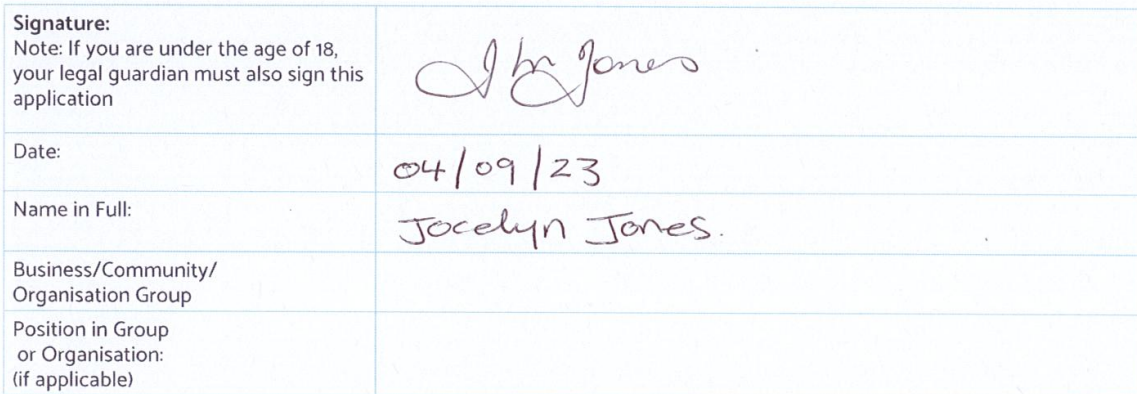 Signature:
Note: If you are under the age of 18,
your legal guardian must also sign this
application
Jones
Date:
04/09/23
Name in Full:
Jocelyn Jones.
Business/Community/
Organisation Group
Position in Group
or Organisation:
(if applicable)